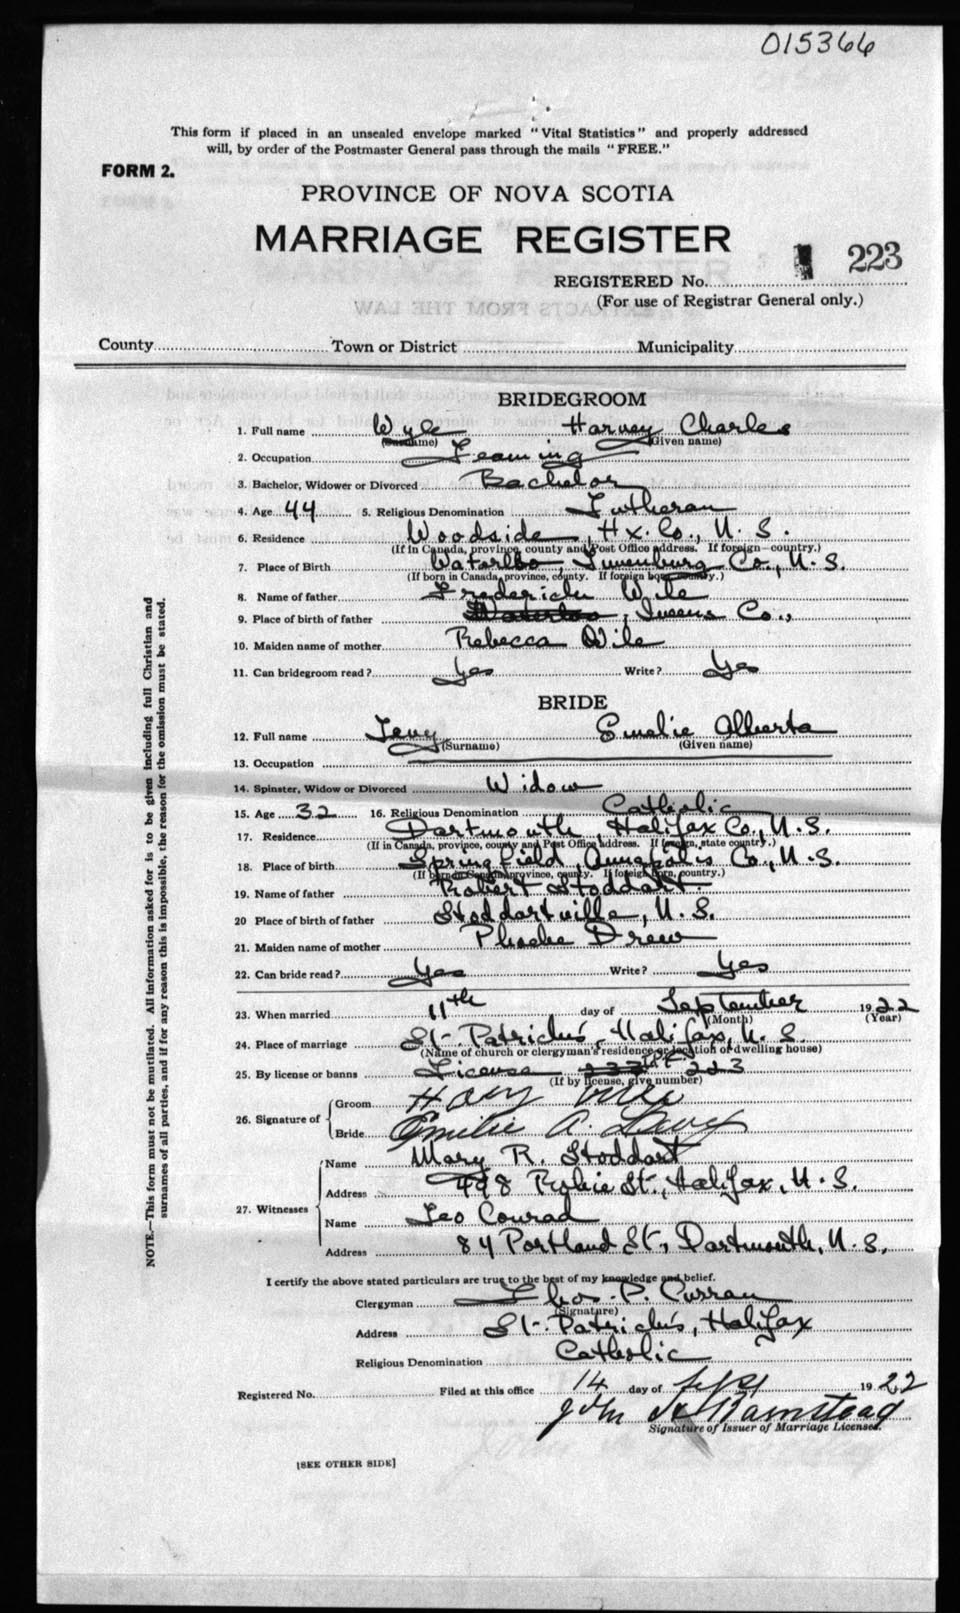 015366
This form if placed in an unsealed envelope marked "Vital Statistics" and properly addressed
will, by order of the Postmaster General pass through the mails "FREE."
FORM 2.
PROVINCE OF NOVA SCOTIA
MARRIAGE REGISTER
223
REGISTERED No.
(For use of Registrar General only.)
County Town or District Municipality
BRIDEGROOM
1. Full name Wyle Harvey Charles
(Surname) (Given name)
2. Occupation Teaming
3. Bachelor, Widower or Divorced Bachelor
4. Age 44 5. Religious Denomination Lutheran
6. Residence Woodside, Hx. Co., N. S.
(If in Canada, province, county and Post Office address. If foreign—country.)
7. Place of Birth Waterloo, Lunenburg Co., N. S.
(If born in Canada, province, county. If foreign born country.)
8. Name of father Frederick Wile
9. Place of birth of father Waterloo, Queens Co.,
10. Maiden name of mother Rebecca Wile
11. Can bridegroom read? Yes Write? Yes
BRIDE
12. Full name Levy Emelie Alberta
(Surname) (Given name)
13. Occupation
14. Spinster, Widow or Divorced Widow
15. Age 32 16. Religious Denomination Catholic
17. Residence Dartmouth, Halifax Co., N. S.
(If in Canada, province, county and Post Office address. If foreign, state country.)
18. Place of birth Springfield, Annapolis Co., N. S.
(If born in Canada province, county. If foreign born, country.)
19. Name of father Robert Stoddart
20 Place of birth of father Stoddartville, N. S.
21. Maiden name of mother Phoebe Drew
22. Can bride read? Yes Write? Yes
23. When married 11th day of September 1922
(Month) (Year)
24. Place of marriage St. Patrick's, Halifax, N. S.
(Name of church or clergyman's residence or location of dwelling house)
25. By license or banns License 223
(If by license, give number)
26. Signature of
Groom
Bride Emilie A. Levy
27. Witnesses
Name Mary R. Stoddart
Address 498 Robie St., Halifax, N. S.
Name Leo Conrad
Address 84 Portland St., Dartmouth, N. S.
I certify the above stated particulars are true to the best of my knowledge and belief.
Clergyman Thos. P. Curran
(Signature)
Address St. Patrick's, Halifax
Religious Denomination Catholic
Registered No. Filed at this office 14 day of Sept 1922
John Barnstead
Signature of Issuer of Marriage Licenses.
[SEE OTHER SIDE]
NOTE.—This form must not be mutilated. All information asked for is to be given including full Christian and
surnames of all parties, and if for any reason this is impossible, the reason for the omission must be stated.